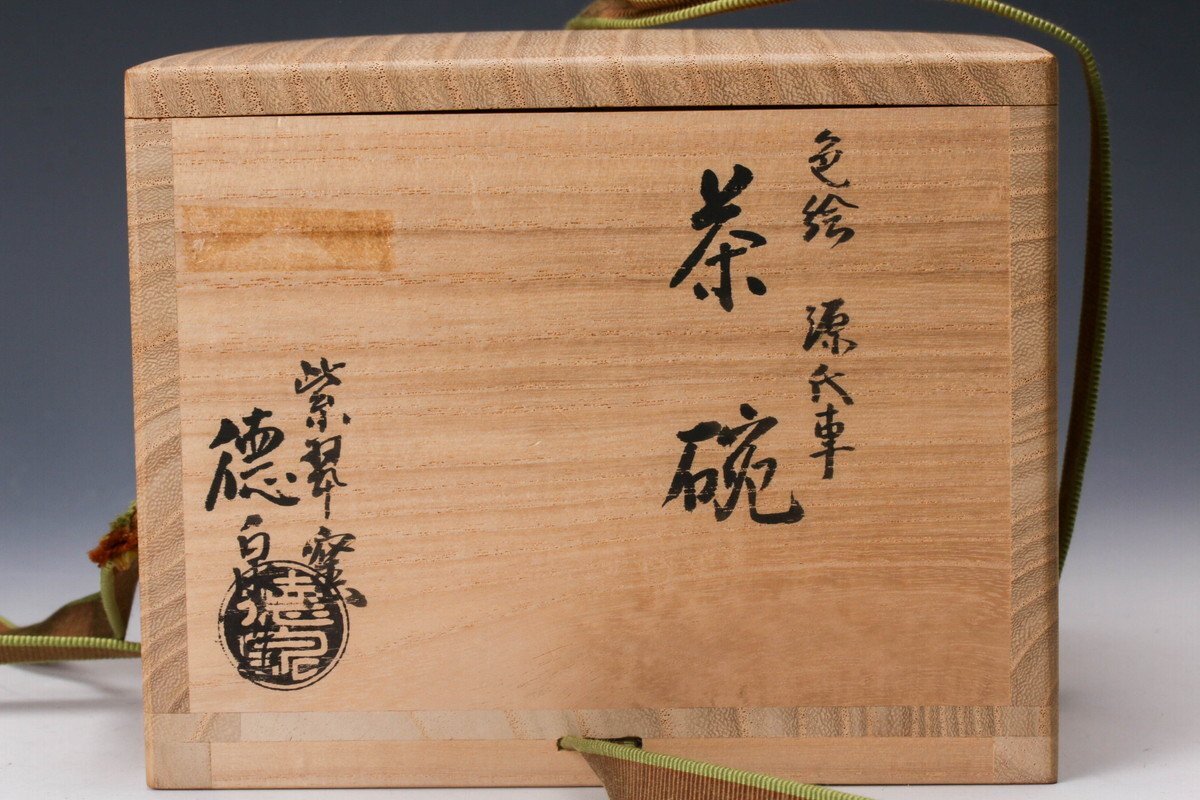 色絵 源氏車
茶碗
紫翠窯
德泉